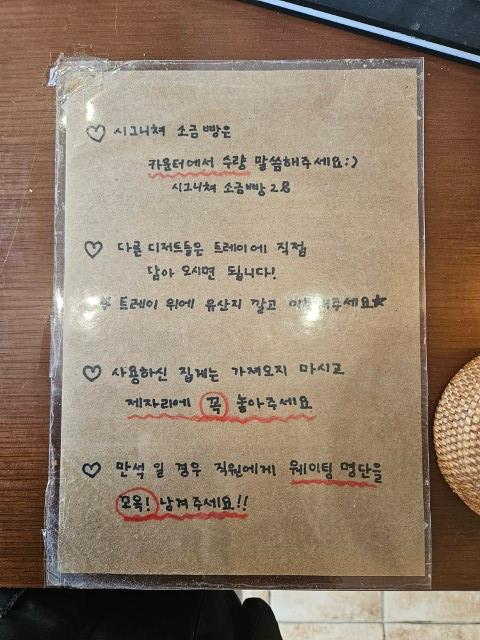 ♡ 시그니쳐 소금빵은
카운터에서 수량 말씀해주세요:)
시그니쳐 소금빵 2종
♡ 다른 디저트들은 트레이에 직접
담아 오시면 됩니다!
트레이 위에 유산지 깔고
♡ 사용하신 집게는 가져오지 마시고
제자리에 꼭 놓아주세요
♡ 만석 일 경우 직원에게 웨이팅 명단을
꼬옥! 남겨주세요!!